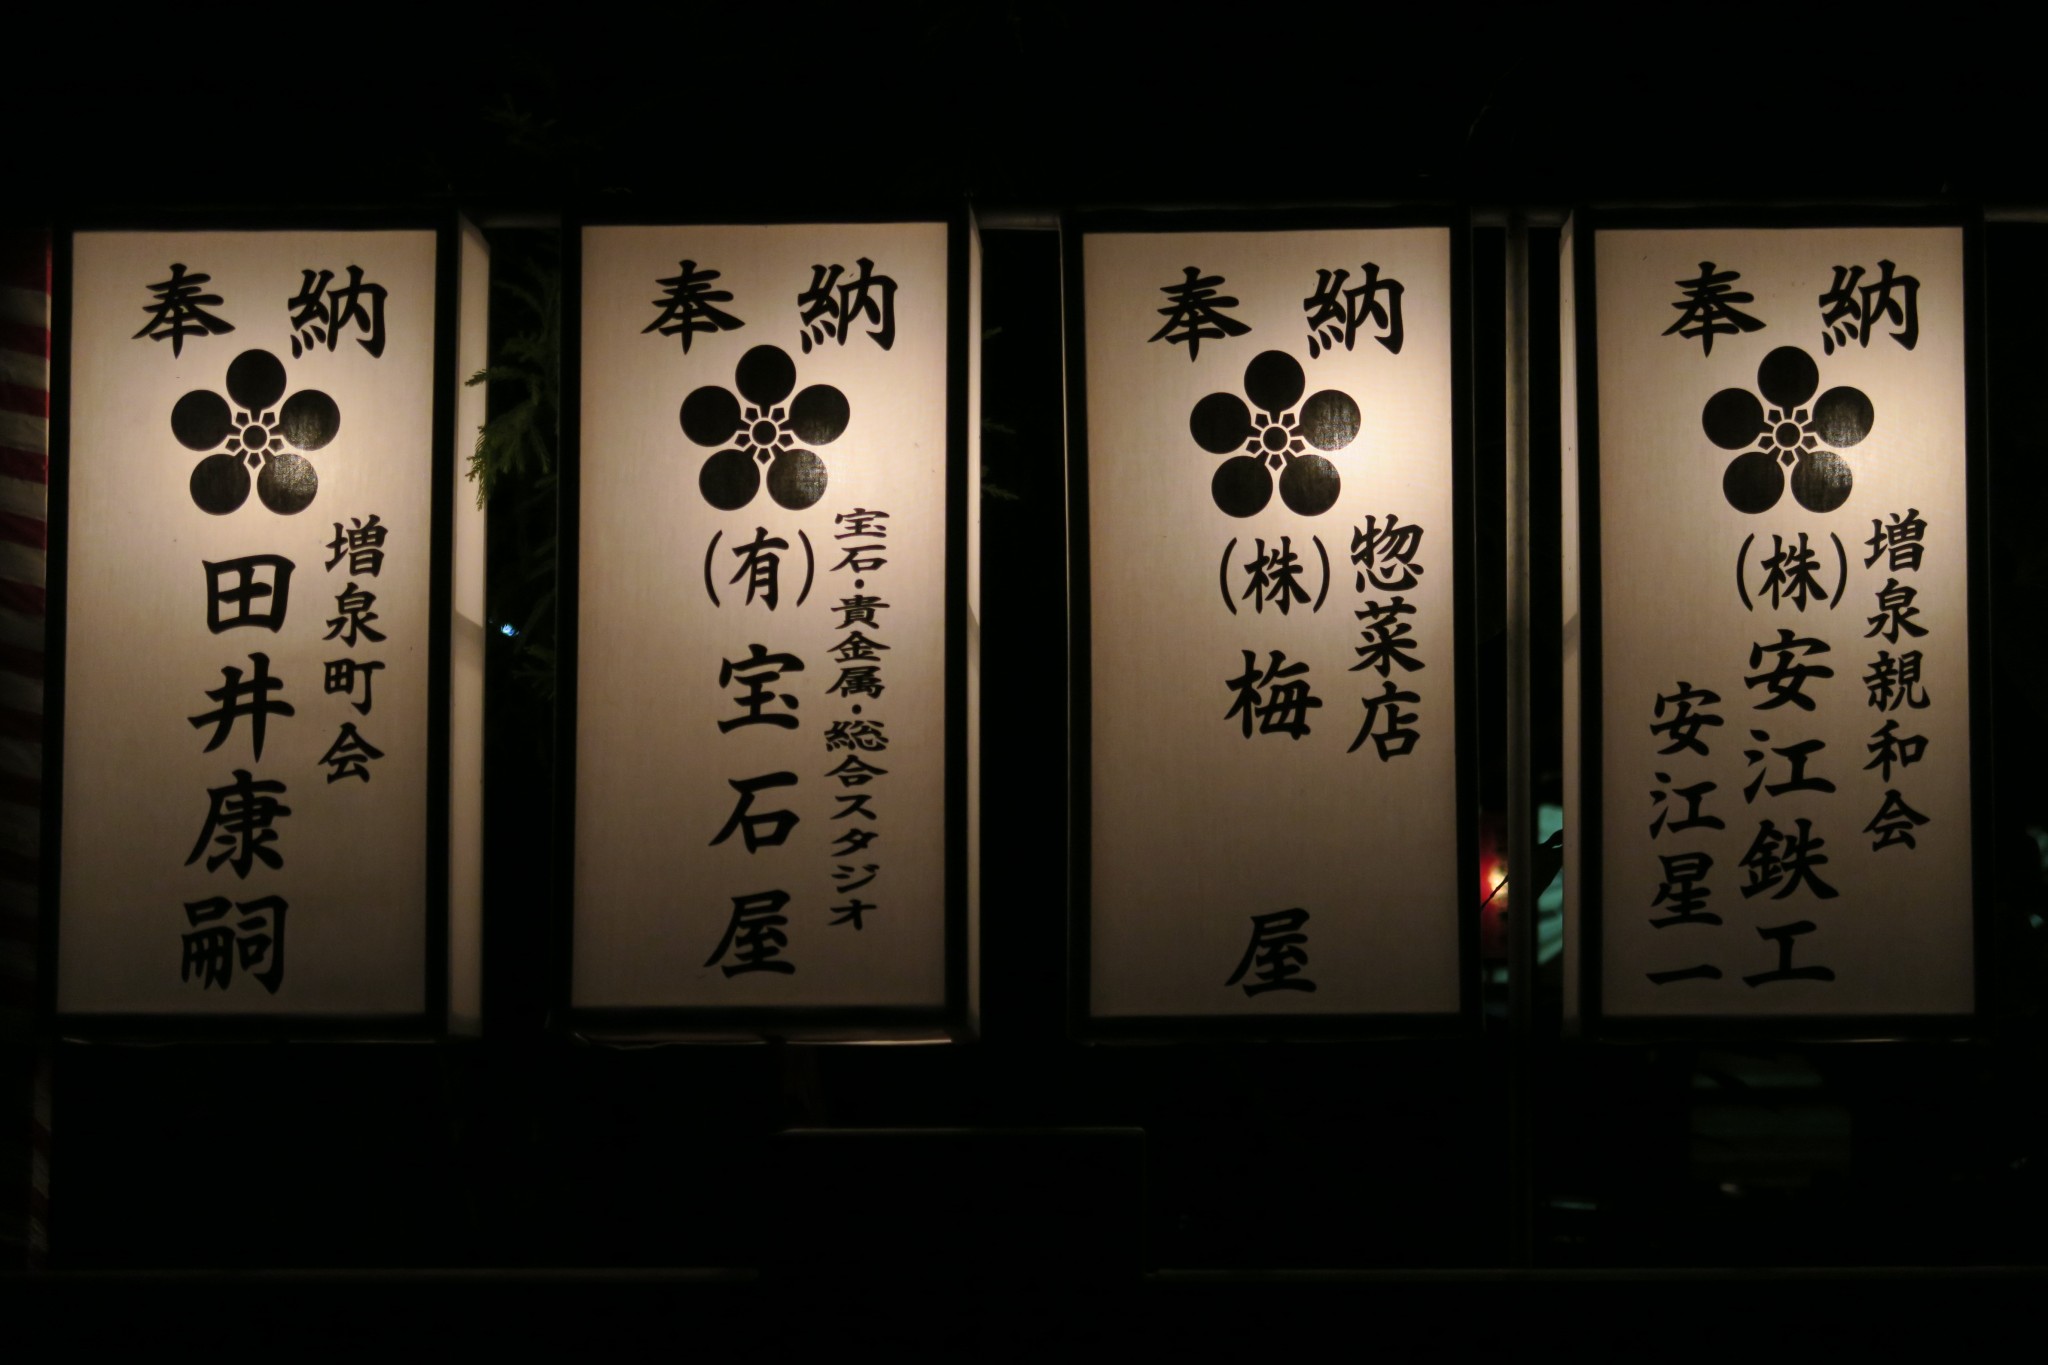 奉納
増泉町会
田井康嗣
奉納
宝石・貴金属・総合スタジオ
(有)宝石屋
奉納
惣菜店
(株)梅屋
奉納
増泉親和会
(株)安江鉄工
安江星一